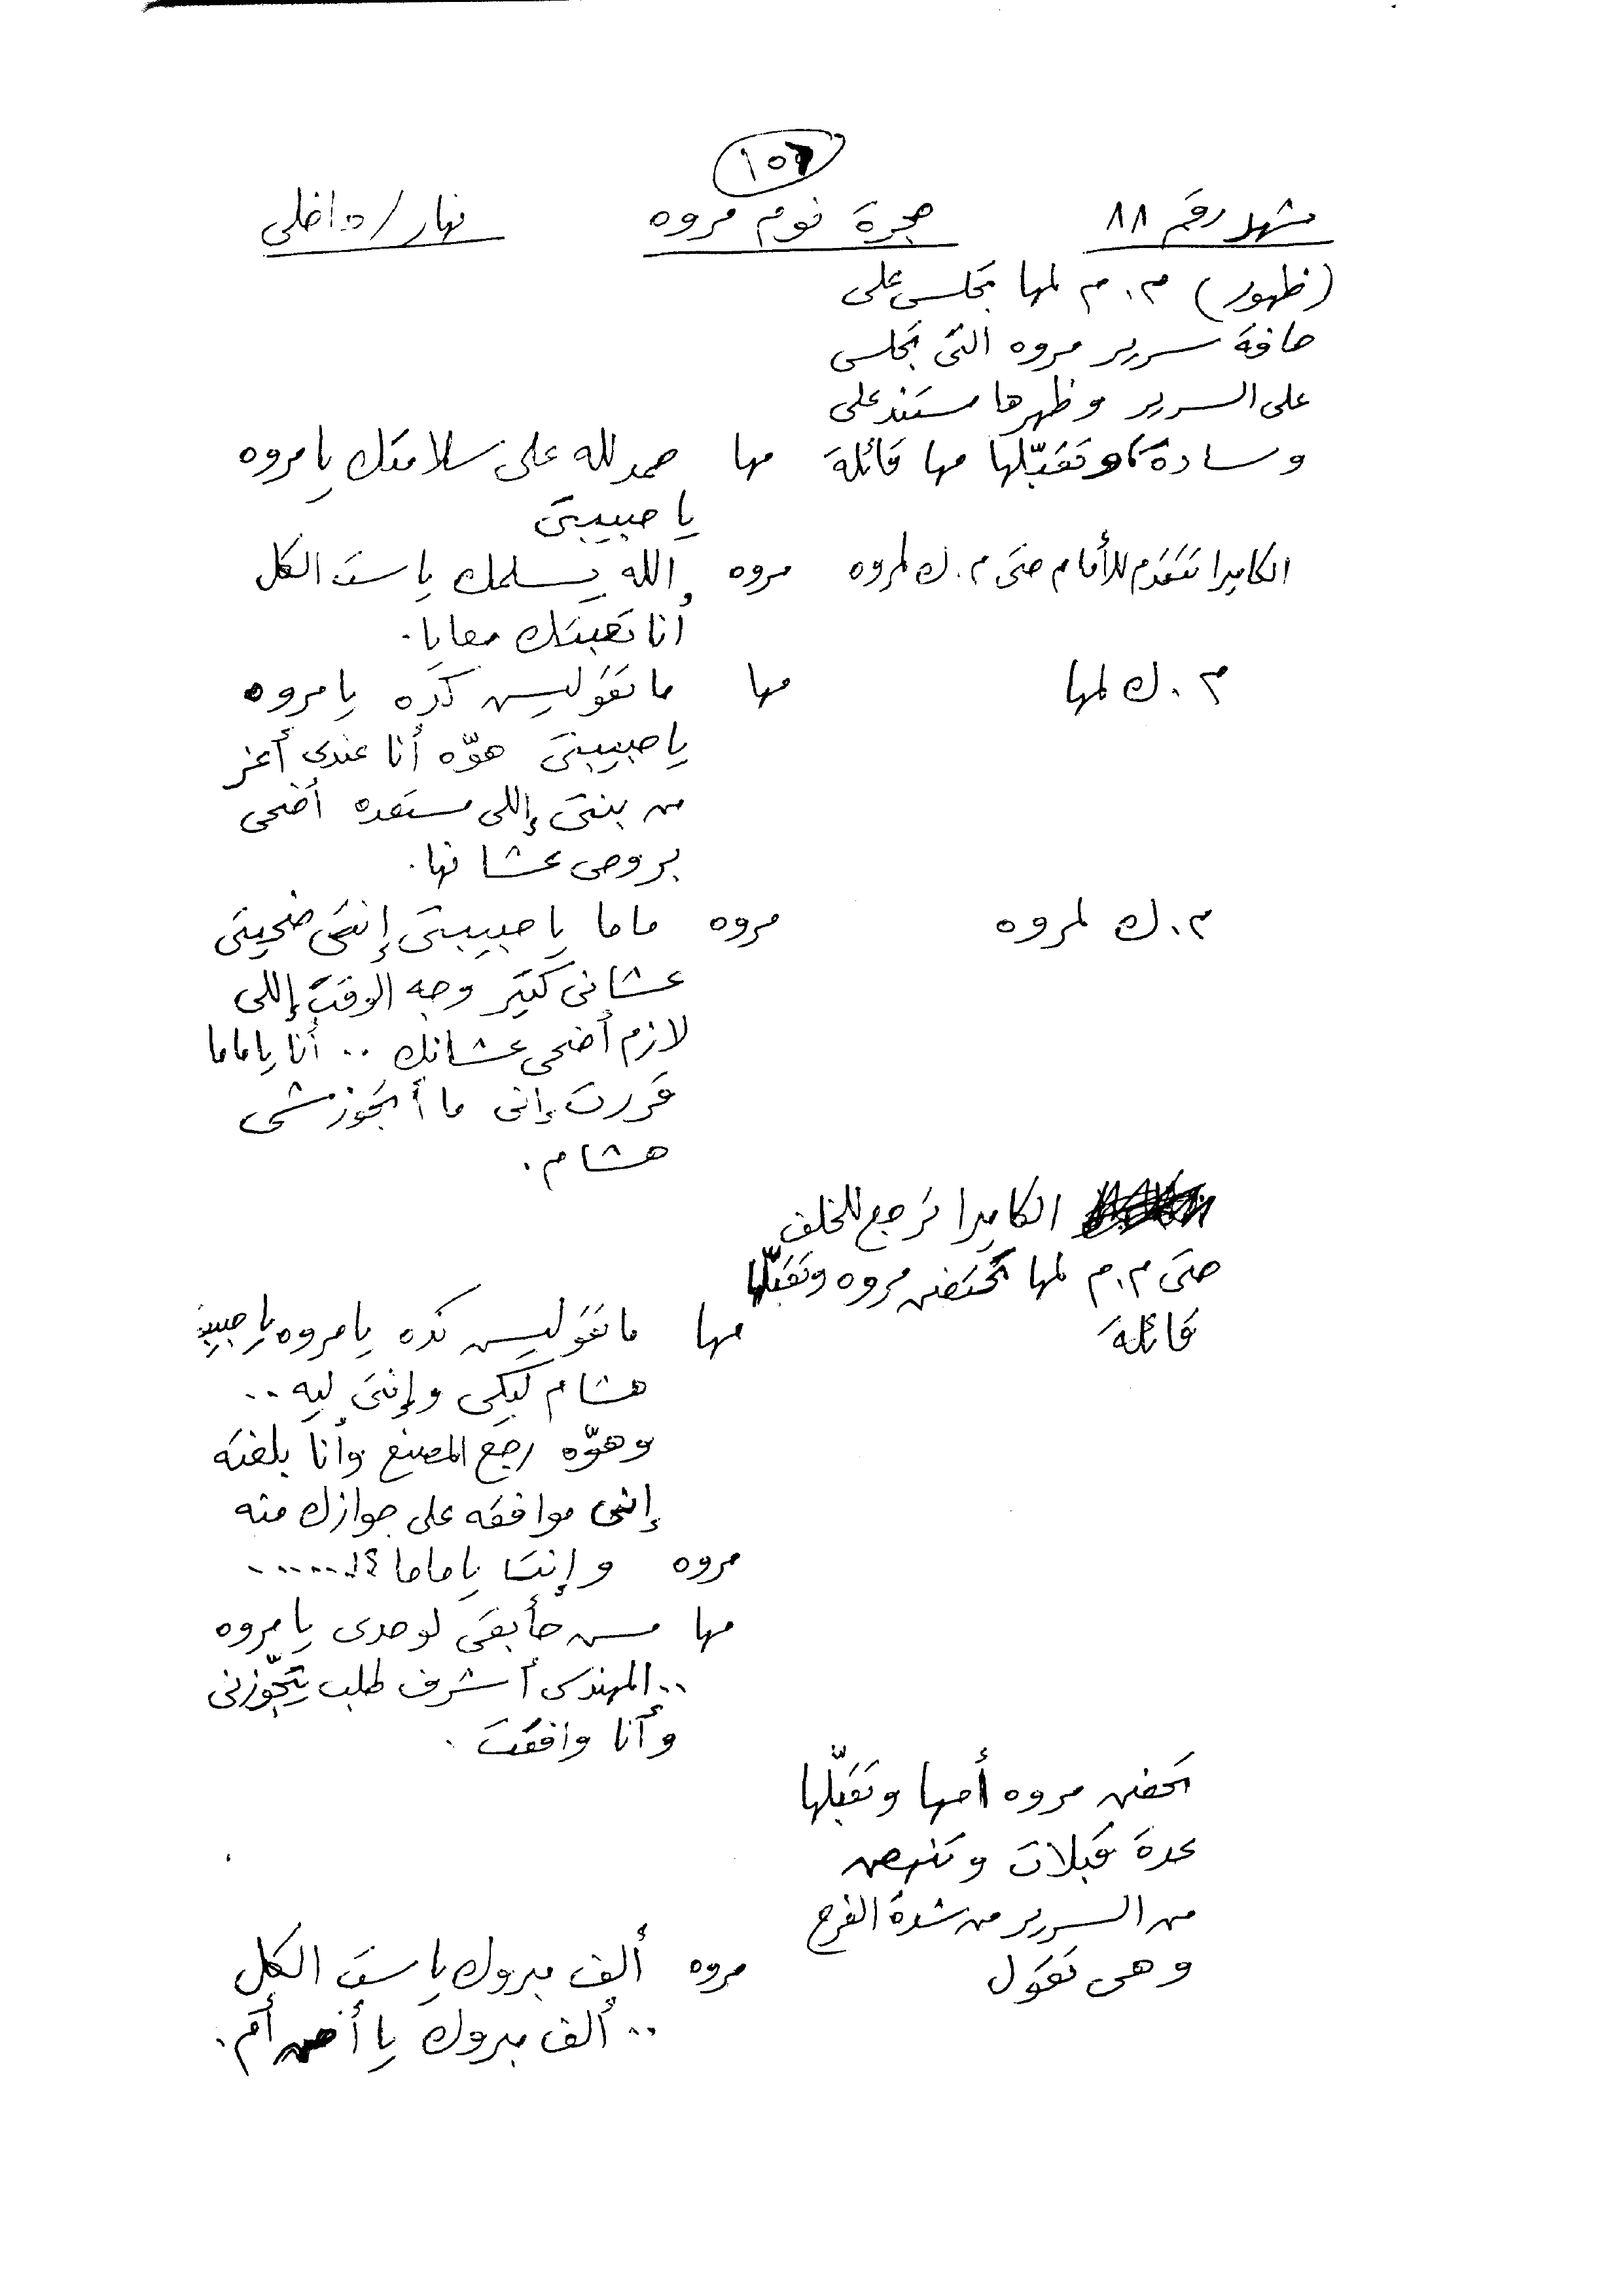 مشهد رقم ٨٨ حجرة نوم مروه نهار/داخلى
(ظهور) م.م لمها تجلس على
حافة سرير مروه التى تجلس
على السرير وظهرها مستند على
وسادة وتقبّلها مها قائلة مها حمدلله على سلامتك يا مروه
يا حبيبتى
الكاميرا تتقدم للأمام حتى م.ك لمروه مروه الله يسلمك يا ست الكل
أنا تعبتك معايا.
م.ك لمها مها ما تقوليس كده يا مروه
يا حبيبتى هوّه أنا عندى أعز
من بنتى إللى مستعده أضحى
بروحى عشانها.
م.ك لمروه مروه ماما يا حبيبتى إنتى ضحيتى
عشانى كتير وجه الوقت إللى
لازم أضحى عشانك .. أنا يا ماما
قررت إنى ما أتجوزشى
هشام.
الكاميرا ترجع للخلف
حتى م.م لمها تحتضن مروه وتقبّلها
قائلة مها ما تقوليس كده يا مروه يا حبيبتى
هشام ليكى وإنتى ليه ..
وهوّه رجع المصنع وأنا بلغته
إنى موافقه على جوازك منه
مروه وإنت يا ماما ؟! ......
مها مس حأبقى لوحدى يا مروه
.. المهندس أشرف طلب يتجّوزنى
وأنا وافقت.
تحضن مروه أمها وتقبّلها
عدة قبلات وتنهض
من السرير من شدة الفرح
وهى تقول مروه ألف مبروك يا ست الكل
.. ألف مبروك يا أحن أم.